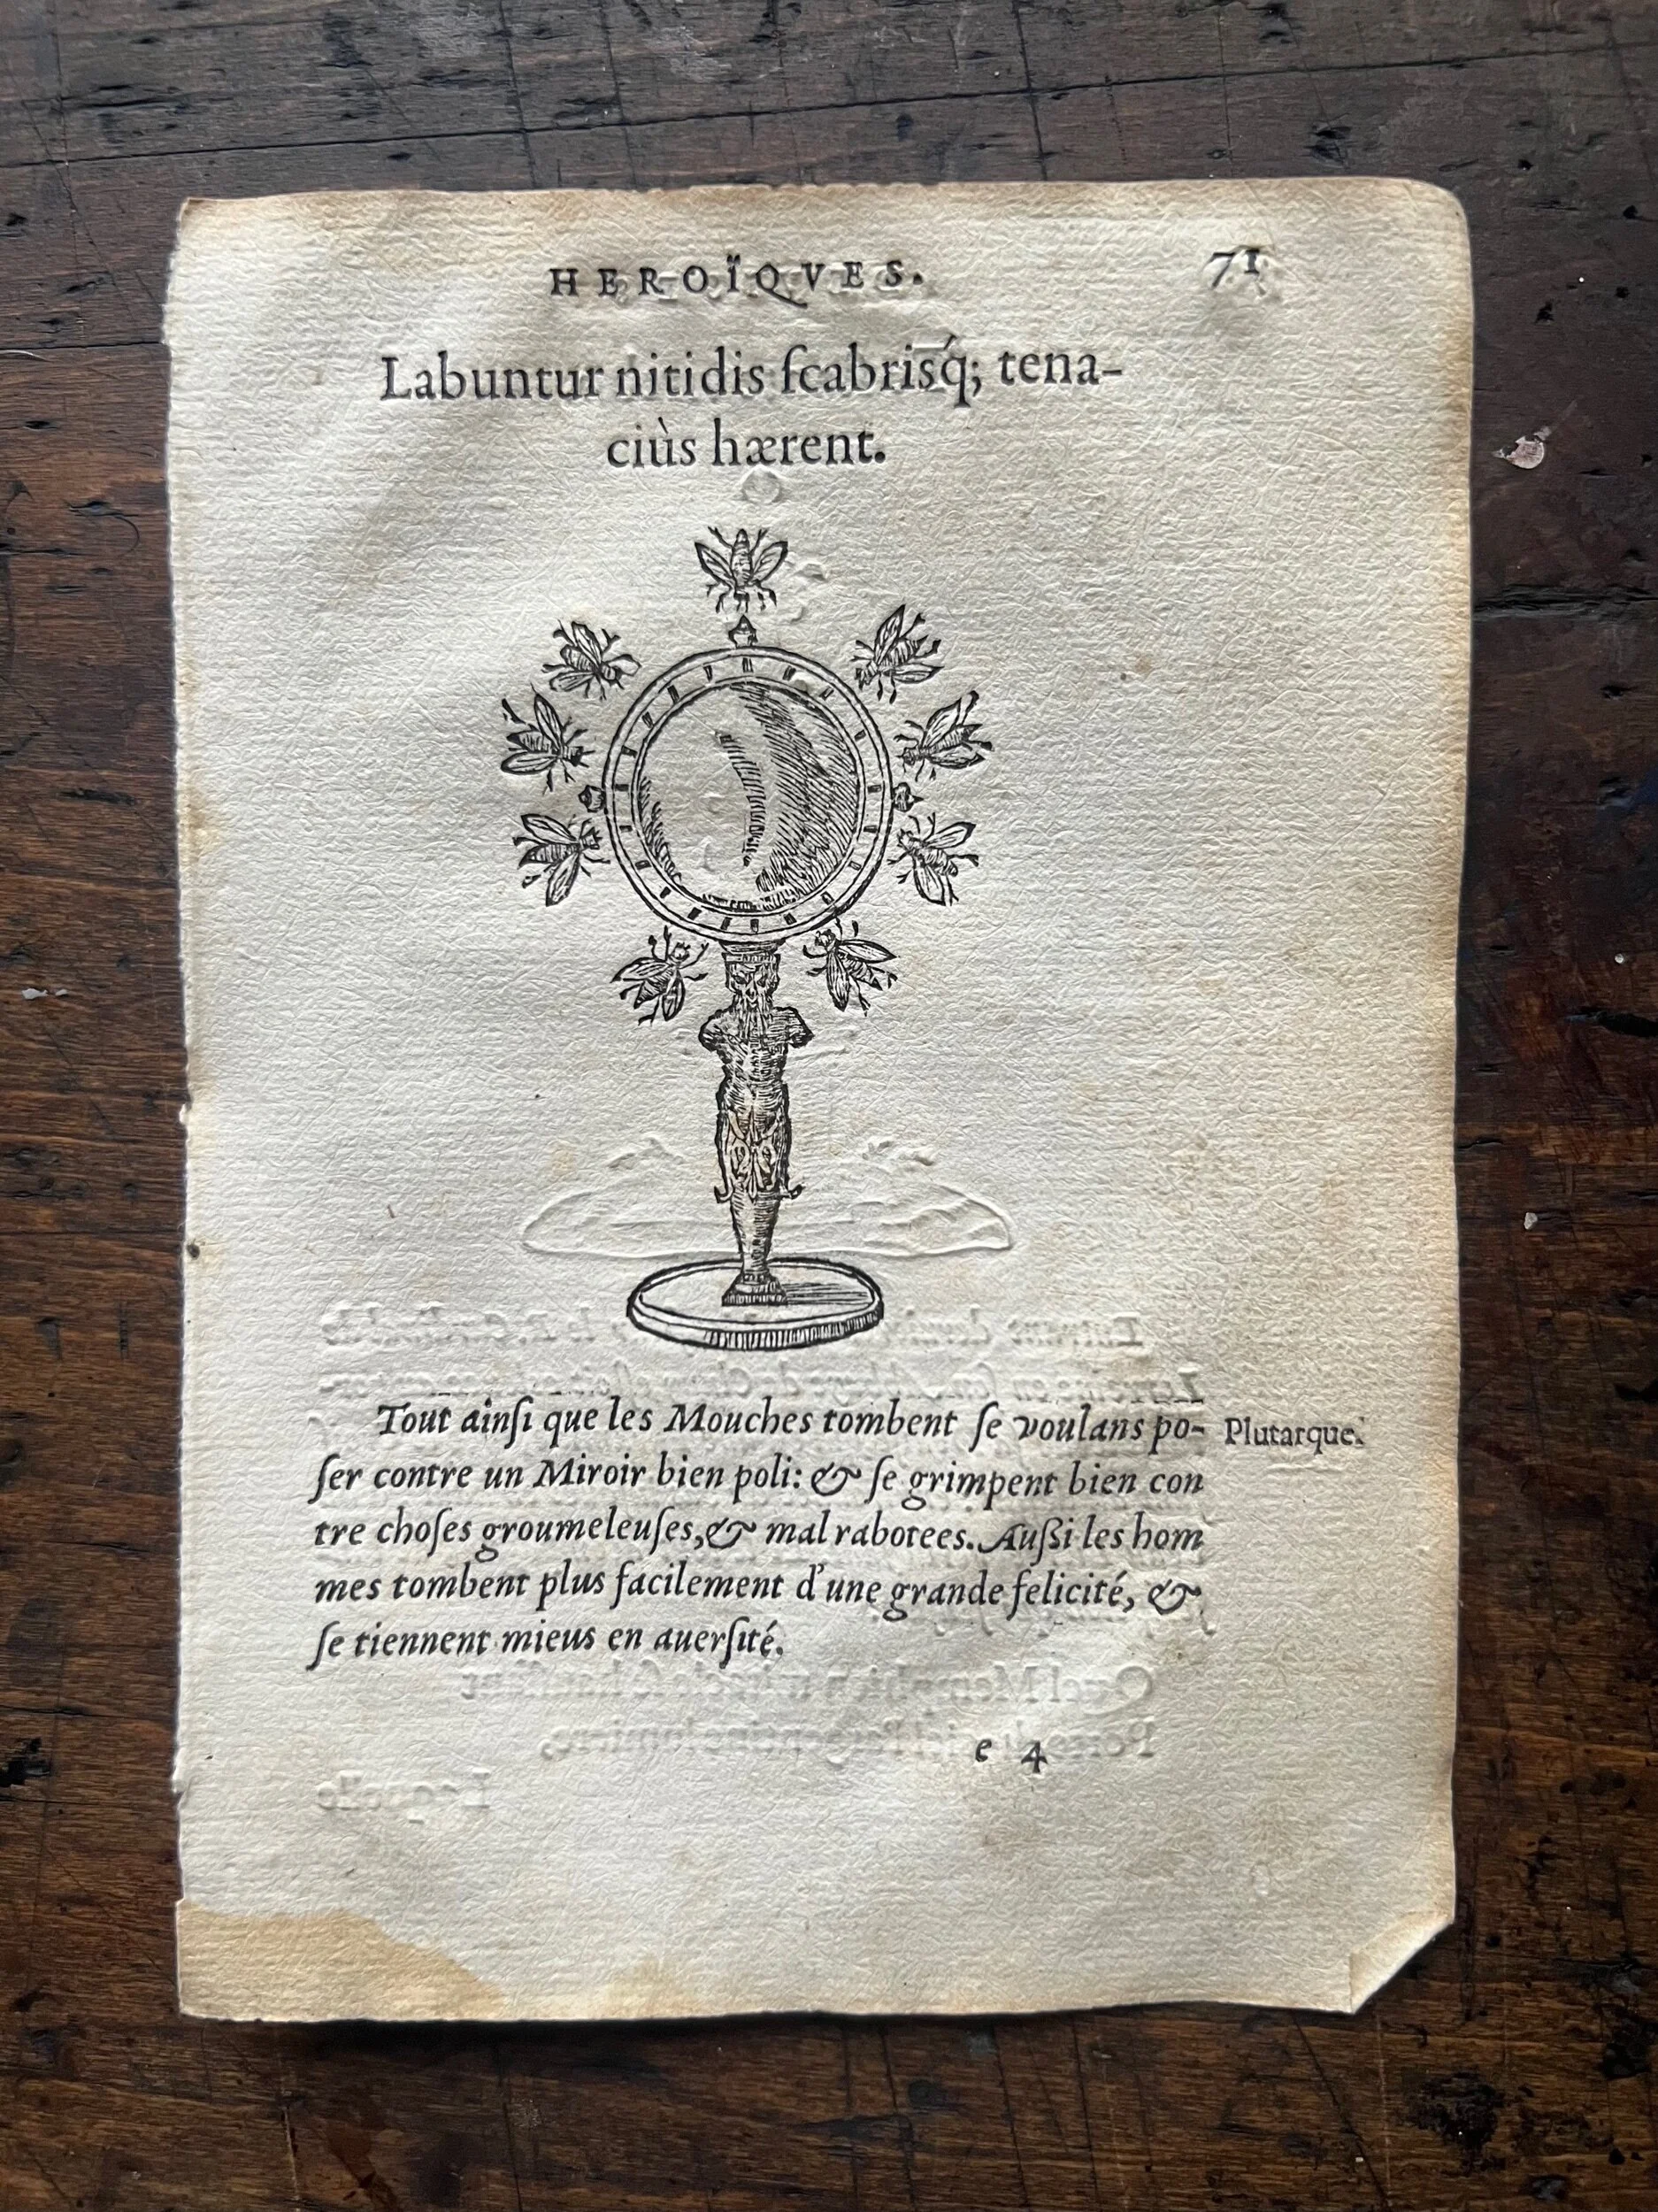 HEROÏQVES.
71
Labuntur nitidis ſcabrisq́; tena-
ciùs hærent.
Tout ainſi que les Mouches tombent ſe voulans po-
Plutarque.
ſer contre un Miroir bien poli: & ſe grimpent bien con
tre choſes groumeleuſes, & mal rabotees. Außi les hom
mes tombent plus facilement d'une grande felicité, &
ſe tiennent mieus en auerſité.
e 4